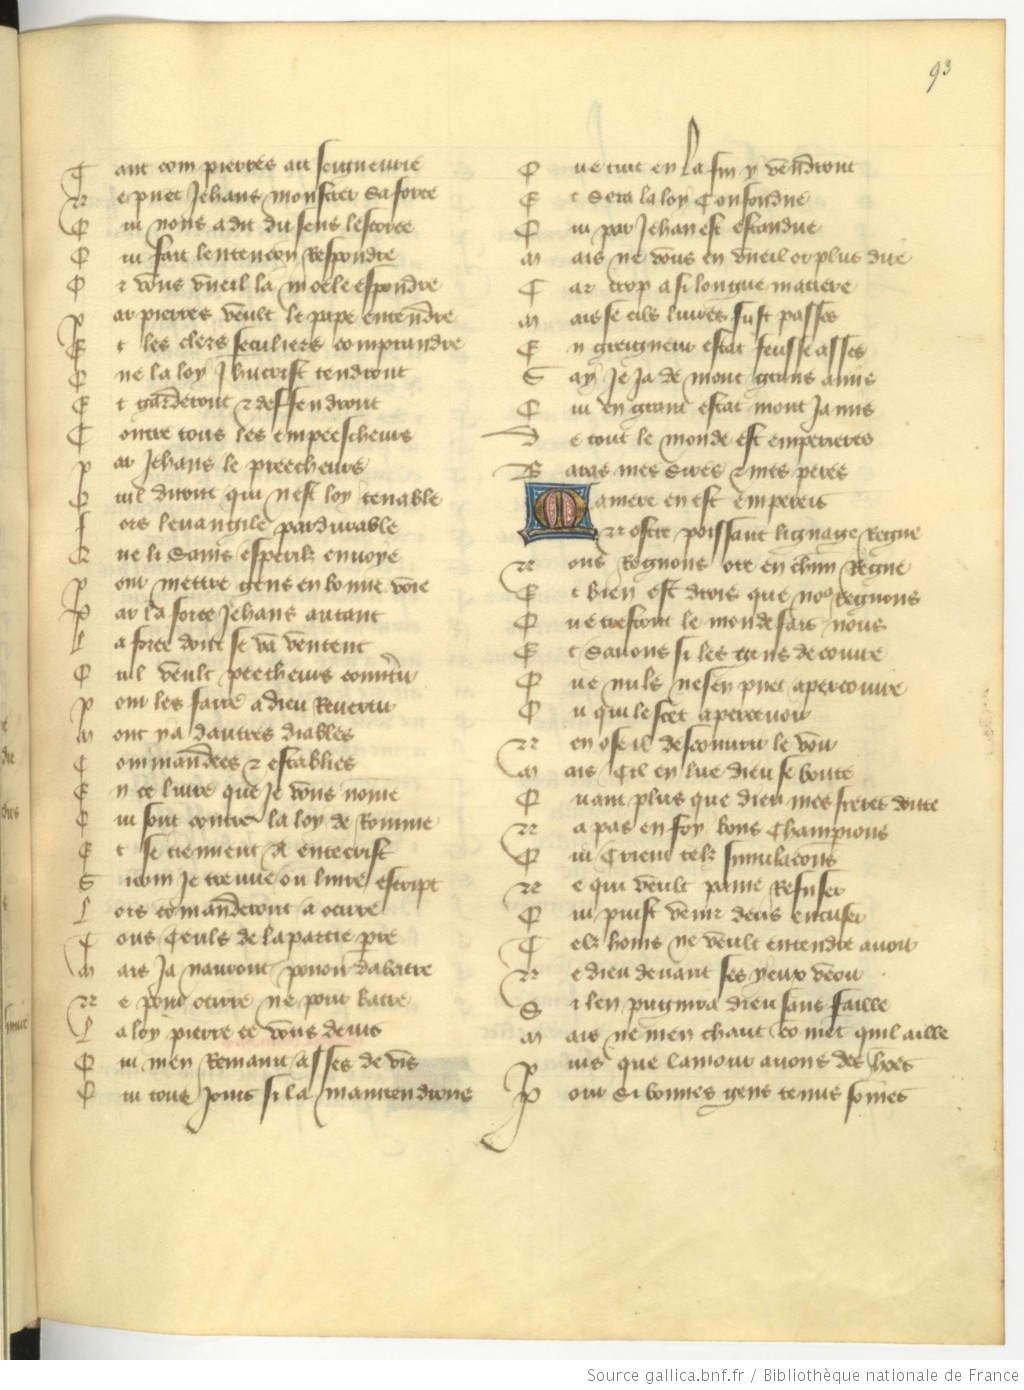 93
Tant com pierres ait seigneurie
Ne puet Jehans monstrer sa force
Or vous ai dit du sens lescorce
Qui fait lentencon Respondre
Or vous vueil la moele espondre
Par pierres veult le pape entendre
Et les clers seculiers comprandre
Que la loy Jhucrist tendront
Et garderont et deffendront
Contre tous les empeescheurs
Par Jehans le preecheurs
Quil diront qui nest loy tenable
Fors levangile pardurable
Que li Sains esperilz envoye
Pour mettre gens en bonne voie
Par la force Jehans autant
La force dont se va ventent
Quil veult pecheurs
Pour les faire a dieu Revertir
Mont y a dautres diables
Commandees et establies
En ce livre que Je vous nome
Qui sont contre la loy de Romme
Et se tiennent a entecrist
Sicom Je treuve ou livre escript
Lors comanderont a occire
Tous Ceuls de la partie pere
Mais Ja nauront pooir dabatre
Ne pour occire ne pour batre
La loy pierre ce vous devis
Qui nen Remanu asses de vis
Qui tous Jours si la maintendrone
Que tuit en la fin y vendront
Et Sera la loy Confondue
Qui par Jehan est estandue
Mais ne vous en vueil or plus dire
Car trop a si longue matiere
Mais se cils livres fust passes
En greigneur estat feusse asses
Say Je Ja de mont grans amis
Qui en grant estat mont Ja mis
De tout le monde est emperieres
Baras mes Sires et mes peres
Ma mere en est empereis
Nostre poissant lignage Regne
Nous Regnons ore en chun Regne
Et bien est drois que nos Regnons
Que trestout le monde fais nous
Et Savons si les gens decouvre
Que nuls nesen puet apercouvre
Ou qui le scet apercevoir
Nen ose il descouvrir le voir
Mais Cil en lire dieu se boute
Quant plus que dieu mes freres doute
Na pas en foy bons Champions
Qui Crient telz simulacions
Ne qui veult paine Refuser
Qui puist venir deus encuser
Telz homs ne veult entendre avoir
Ne dieu devant ses yeux veoir
Si len pugnira dieu sans faille
Mais ne men chaut co met quil aille
Puis que lamour avons des hoes
Pour Si bonnes gens tenus somes